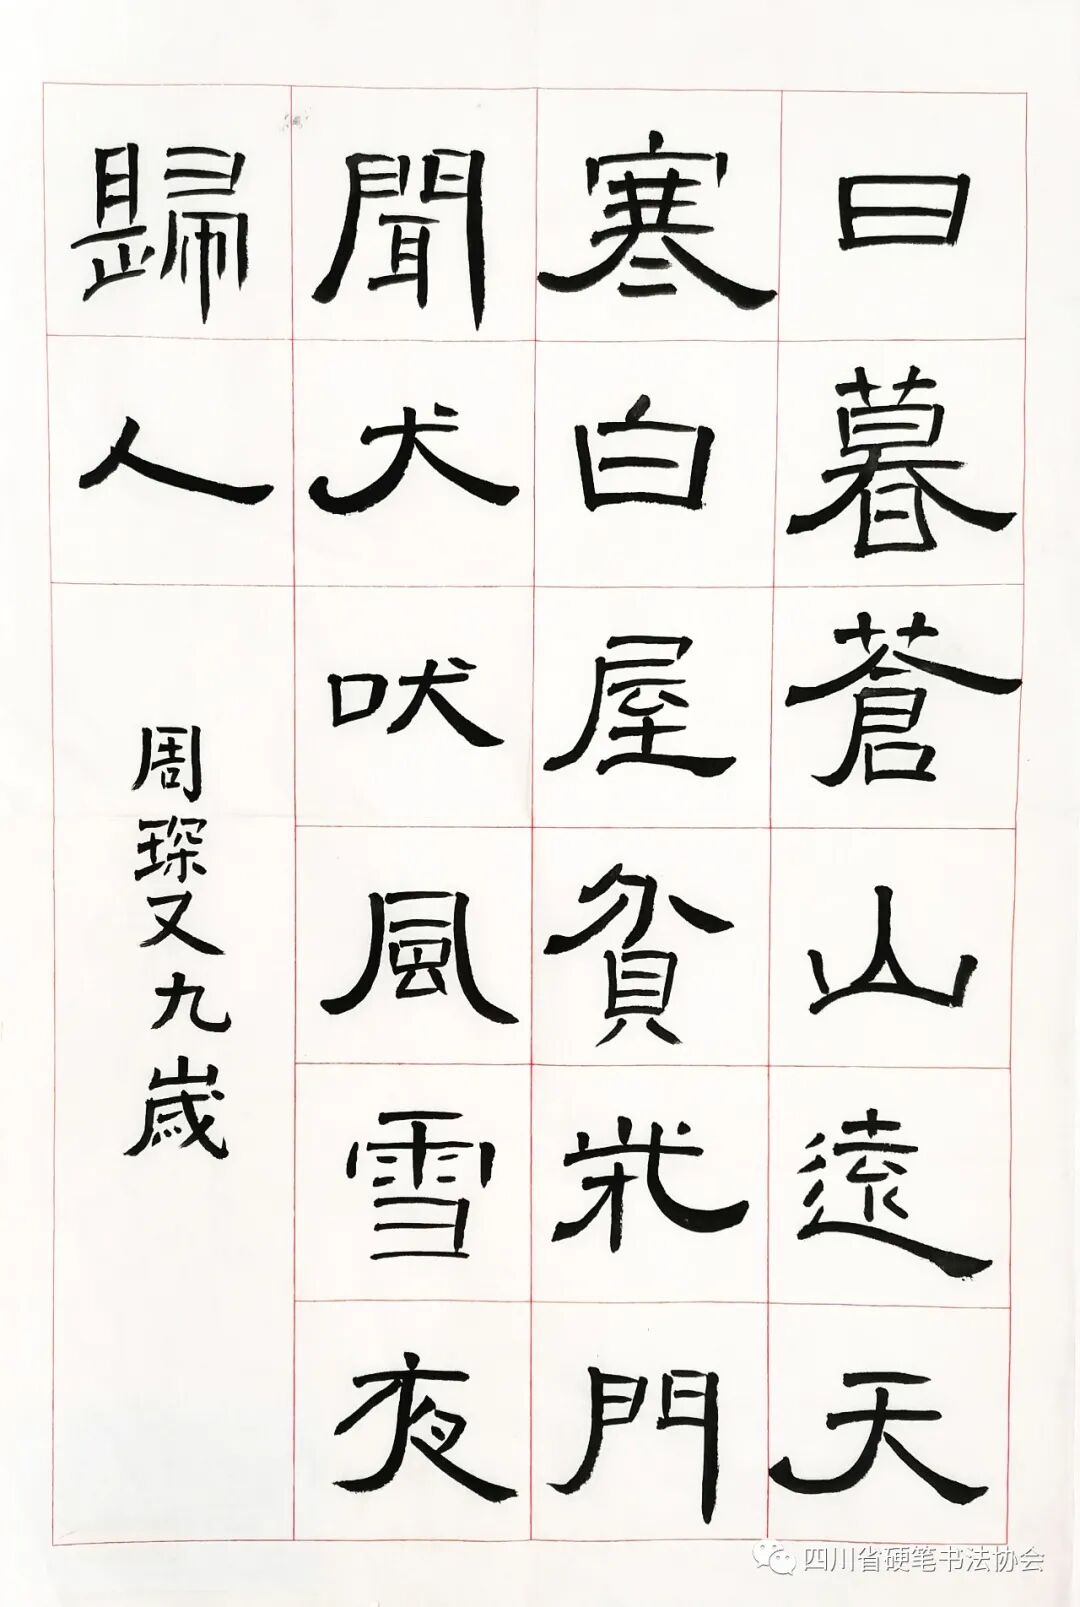 日暮蒼山遠天
寒白屋貧柴門
聞犬吠風雪夜
歸人
周琛又九歲
四川省硬笔书法协会